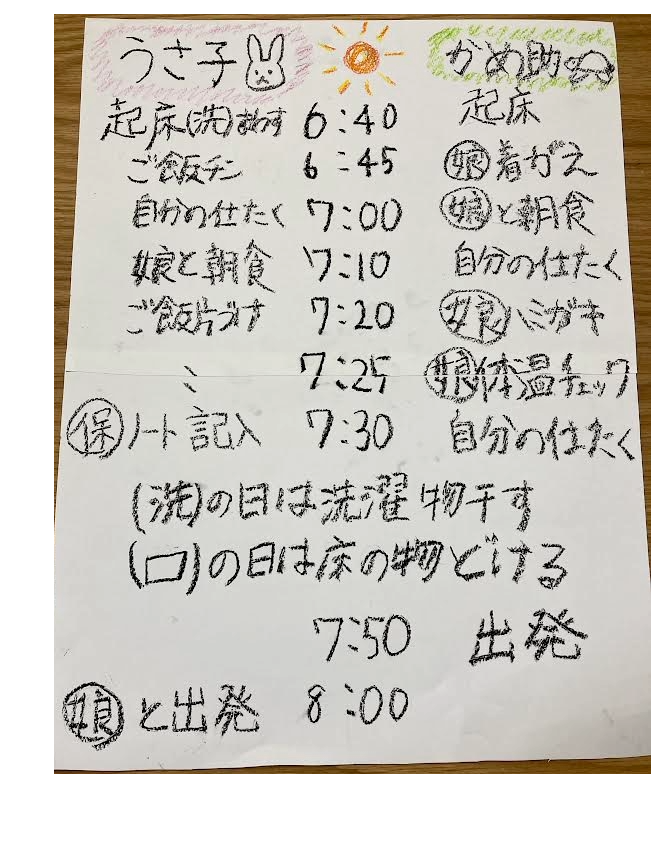 うさ子 かめ助
起床(洗)まわす 6:40 起床
ご飯チン 6:45 娘着がえ
自分の仕たく 7:00 娘と朝食
娘と朝食 7:10 自分の仕たく
ご飯片づけ 7:20 娘ハミガキ
: 7:25 娘体温チェック
保ノート記入 7:30 自分の仕たく
(洗)の日は洗濯物干す
(ロ)の日は床の物どける
7:50 出発
娘と出発 8:00